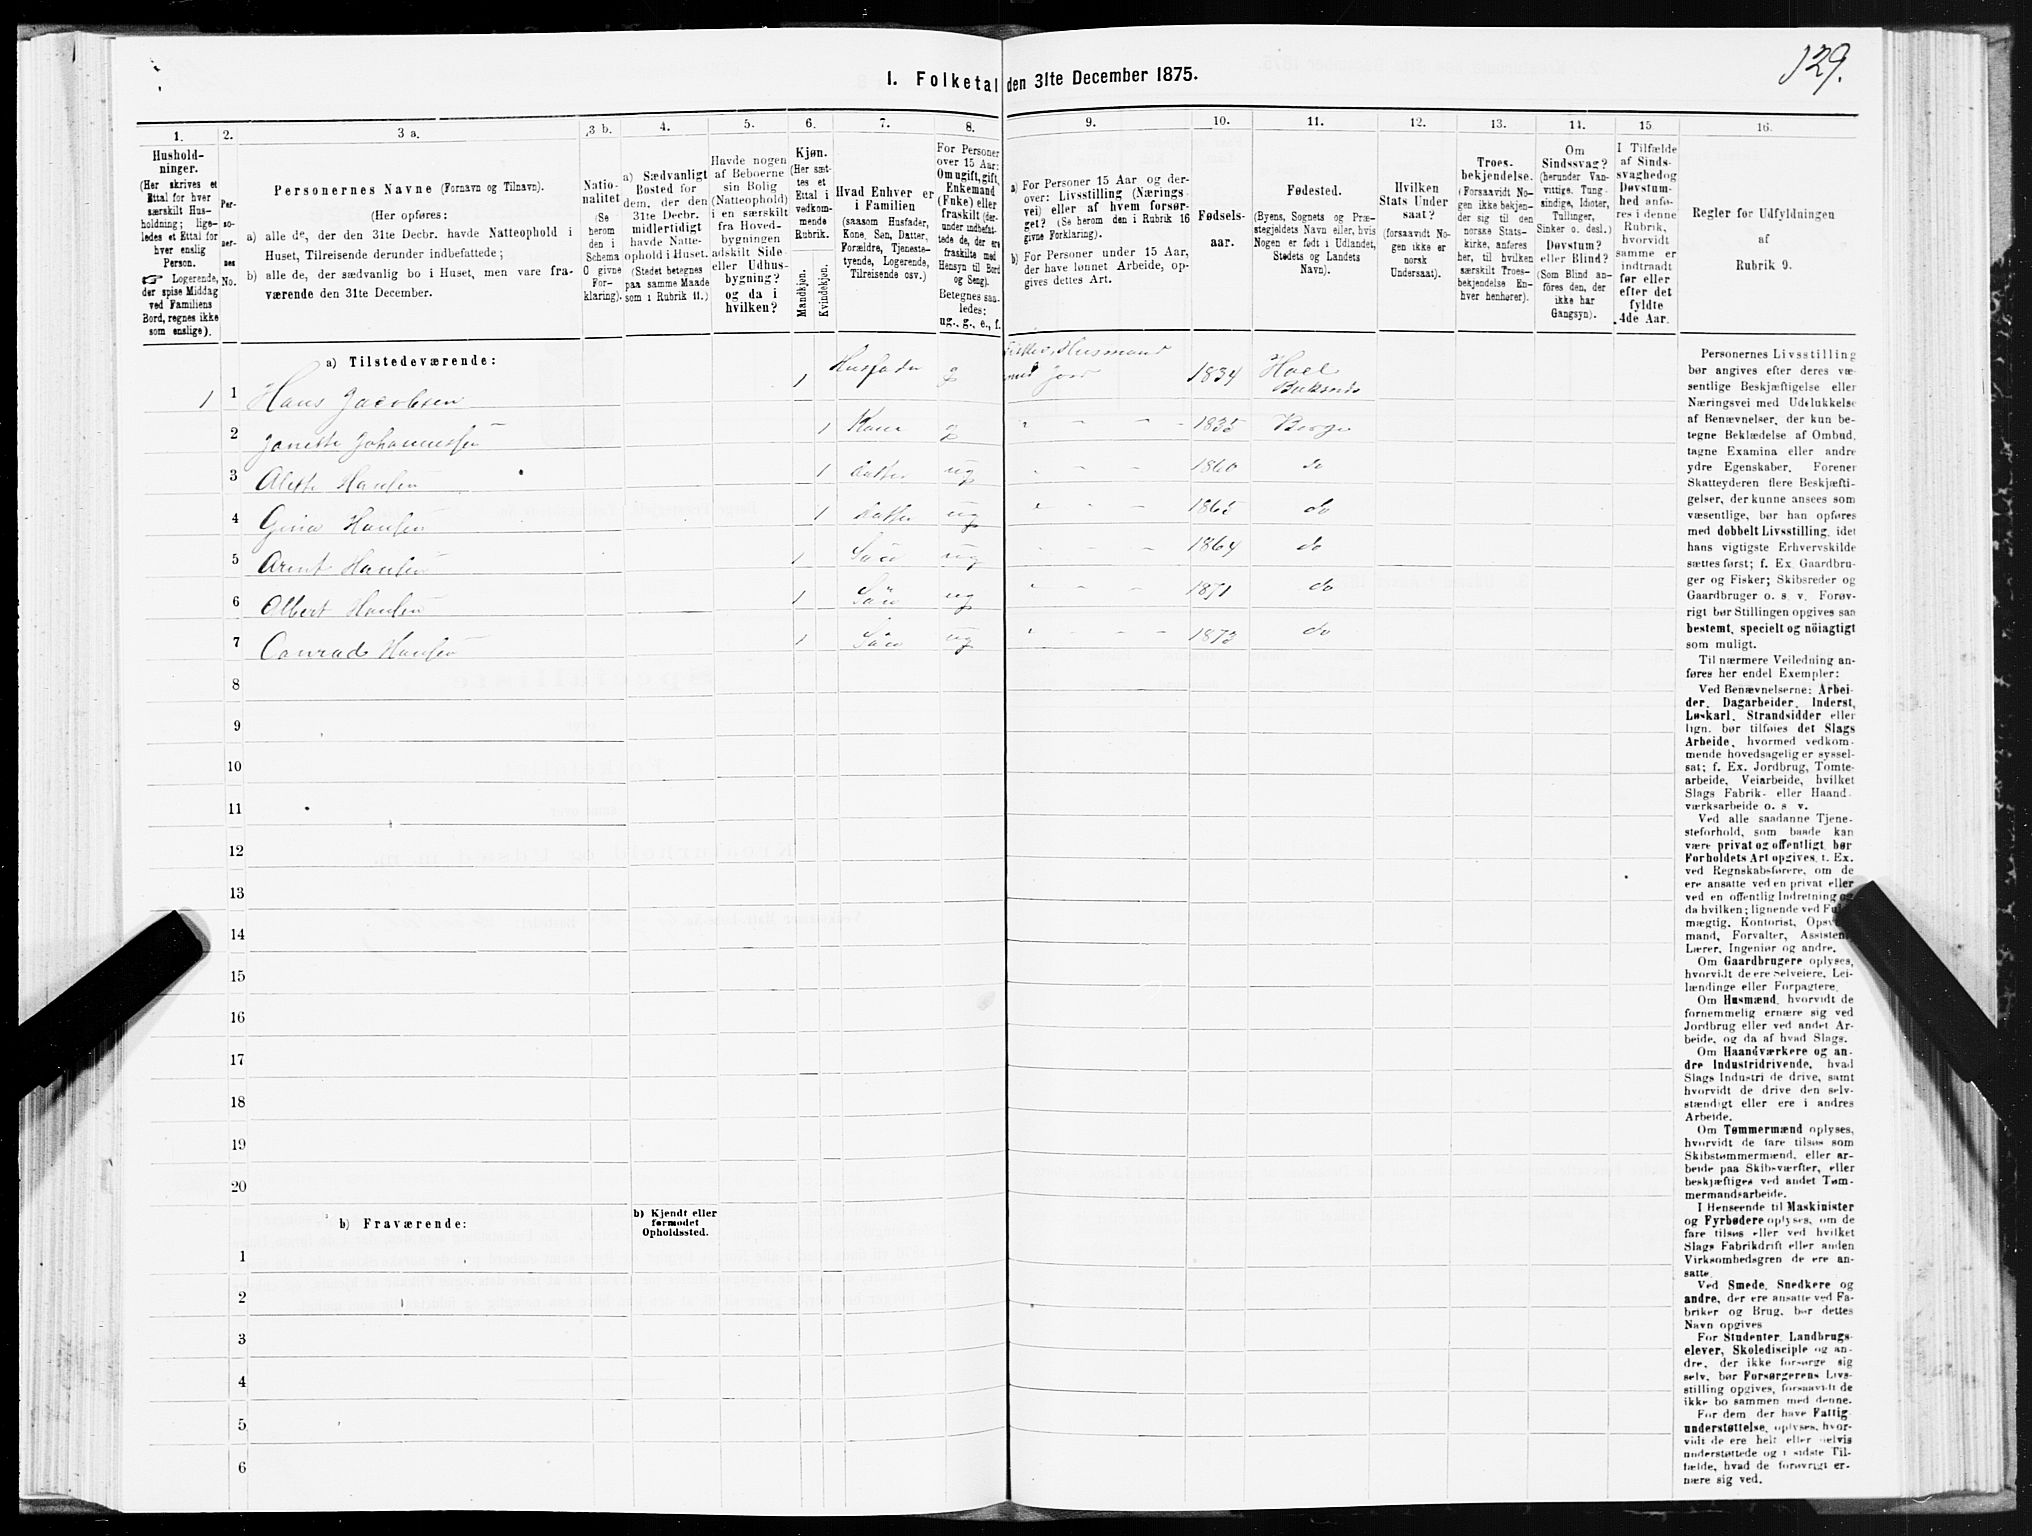 129.
I. Folketal den 31te December 1875.
1.
Hushold-
ninger.
(Her skrives et
Ettal for hver
særskilt Hus-
holdning; lige-
ledes et Ettal for
hver enslig
Person.
☞ Logerende,
der spise Middag
ved Familiens
Bord, regnes ikke
som enslige).
2.
Per-
so-
ner-
nes
No.
3 a.
Personernes Navne (Fornavn og Tilnavn).
(Her opføres:
a) alle de, der den 31te Decbr. havde Natteophold i
Huset, Tilreisende derunder indbefattede;
b) alle de, der sædvanlig bo i Huset, men vare fra-
værende den 31te December.
3 b.
Natio-
nalitet
(Se
herom
den i
Schema
O givne
For-
klaring).
4.
a) Sædvanligt
Bosted for
dem, der den
31te Decbr.
midlertidigt
havde Natte-
ophold i Huset.
(Stedet betegnes
paa samme Maade
som i Rubrik 11.)
5.
Havde nogen
af Beboerne
sin Bolig
(Natteophold)
i en særskilt
fra Hoved-
bygningen
adskilt Side-
eller Udhus-
bygning?
og da i
hvilken?
6.
Kjøn.
(Her sæt-
tes et
Ettal i
vedkom-
mende
Rubrik.
Mandkjøn.
Kvindekjøn.
7.
Hvad Enhver er
i Familien
(saasom Husfader,
Kone, Søn, Datter,
Forældre, Tjeneste-
tyende, Logerende,
Tilreisende osv.)
8.
For Personer
over 15 Aar:
Om ugift, gift,
Enkemand
(Enke) eller
fraskilt (der-
under indbefat-
tede de, der ere
fraskilte med
Hensyn til Bord
og Seng).
Betegnes saa-
ledes:
ug., g., e., f.
9.
a) For Personer 15 Aar og der-
over: Livsstilling (Nærings-
vei) eller af hvem forsør-
get? (Se herom den i Rubrik 16
givne Forklaring).
b) For Personer under 15 Aar,
der have lønnet Arbeide, op-
gives dettes Art.
10.
Fødsels-
aar.
11.
Fødested.
(Byens, Sognets og Præ-
stegjeldets Navn eller, hvis
Nogen er født i Udlandet,
Stedets og Landets
Navn).
12.
Hvilken
Stats Under
saat?
(forsaavidt No-
gen ikke er
norsk
Undersaat).
13.
Troes-
bekjendelse.
(Forsaavidt No-
gen ikke bekjen-
der sig til den
norske Stats-
kirke, anføres
her, til hvilken
særskilt Troes-
bekjendelse En-
hver henhører).
14.
Om
Sindssvag?
(herunder Van-
vittige, Tung-
sindige, Idioter,
Tullinger,
Sinker o. desl.)
Døvstum?
eller Blind?
(Som Blind an-
føres den, der
ikke har
Gangsyn).
15
I Tilfælde
af Sinds-
svaghed og
Døvstum-
hed anfø-
res i denne
Rubrik,
hvorvidt
samme er
indtraadt
før eller
efter det
fyldte
4de Aar.
16.
Regler for Udfyldningen
af
Rubrik 9.
a) Tilstedeværende:
1 1 Hans Jacobsen 1 Husfader g Fisker, Husmand med Jord 1834 Hoel Buksnes
2 Janette Johannessen 1 Kone g " - - - 1835 Berge
3 Aleth Hansen 1 Datter ug " - - 1860 do
4 Gina Hansen 1 Datter ug " - - 1865 do
5 Arent Hansen 1 Søn ug - - - 1864 do
6 Albert Hansen 1 Søn ug " - - 1871 do
7 Conrad Hansen 1 Søn ug " - - - 1873 do
8
9
10
11
12
13
14
15
16
17
18
19
20
b) Fraværende:
b) Kjendt eller
formodet
Opholdssted.
1
2
3
4
5
6
Personernes Livsstilling
bør angives efter deres væ-
sentlige Beskjæftigelse eller
Næringsvei med Udelukkelse
af Benævnelser, der kun be-
tegne Beklædelse af Ombud,
tagne Examina eller andre
ydre Egenskaber. Forener
Skatteyderen flere Beskjæfti-
gelser, der kunne ansees som
væsentlige, bør han opføres
med dobbelt Livsstilling, idet
hans vigtigste Erhvervskilde
sættes først; f. Ex. Gaardbru-
ger og Fisker; Skibsreder og
Gaardbruger o. s. v. Forøv-
rigt bør Stillingen opgives saa
bestemt, specielt og nöiagtigt
som muligt.
Til nærmere Veiledning an-
føres her endel Exempler:
Ved Benævnelserne: Arbei-
der, Dagarbeider, Inderst,
Løskarl, Strandsidder eller
lign. bør tilføies det Slags
Arbeide, hvormed vedkom-
mende hovedsagelig er syssel-
sat; f. Ex. Jordbrug, Tomte-
arbeide, Veiarbeide, hvilket
Slags Fabrik- eller Haand-
værksarbeide o. s v.
Ved alle saadanne Tjene-
steforhold, som baade kan
være privat og offentligt, bør
Forholdets Art opgives, t. Ex.
ved Regnskabsførere, om de
ere ansatte ved en privat eller
ved en offentlig Indretning og
da hvilken; lignende ved Fuld-
mægtig, Kontorist, Opsyns-
mand, Forvalter, Assistent,
Lærer, Ingeniør og andre.
Om Gaardbrugere oplyses,
hvorvidt de ere Selveiere, Lei-
lændinge eller Forpagtere.
Om Husmænd, hvorvidt de
fornemmelig ernære sig ved
Jordbrug eller ved andet Ar-
beide, og da af hvad Slags.
Om Haandværkere og an-
dre Industridrivende, hvad
Slags Industri de drive, samt
hvorvidt de drive den selv-
stændigt eller ere i andres
Arbeide.
Om Tømmermænd oplyses,
hvorvidt de fare tilsøs som
Skibstømmermænd, eller ar-
beide paa Skibsværfter, eller
beskjæftiges ved andet Tøm-
mermandsarbeide.
I Henseende til Maskinister
og Fyrbødere oplyses, om de
fare tilsøs eller ved hvilket
Slags Fabrikdrift eller anden
Virksomhedsgren de ere an-
satte.
Ved Smede, Snedkere og
andre, der ere ansatte ved Fa-
briker og Brug, bør dettes
Navn opgives
For Studenter, Landbrugs-
elever, Skoledisciple og an-
dre, der ikke forsørge sig
selv, bør Forsørgerens Livs-
stilling opgives, forsaavidt de
ikke bo sammen med denne.
For dem, der have Fattig-
understøttelse, oplyses, hvor-
vidt de ere helt eller delvis
understøttede og i sidste Til-
fælde, hvad de forøvrigt er-
nære sig ved.